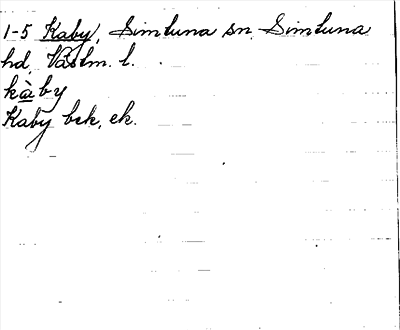 1-5 Kaby, Simtuna sn, Simtuna
hd, Västm. l.
kàby
Kaby bek, ek.